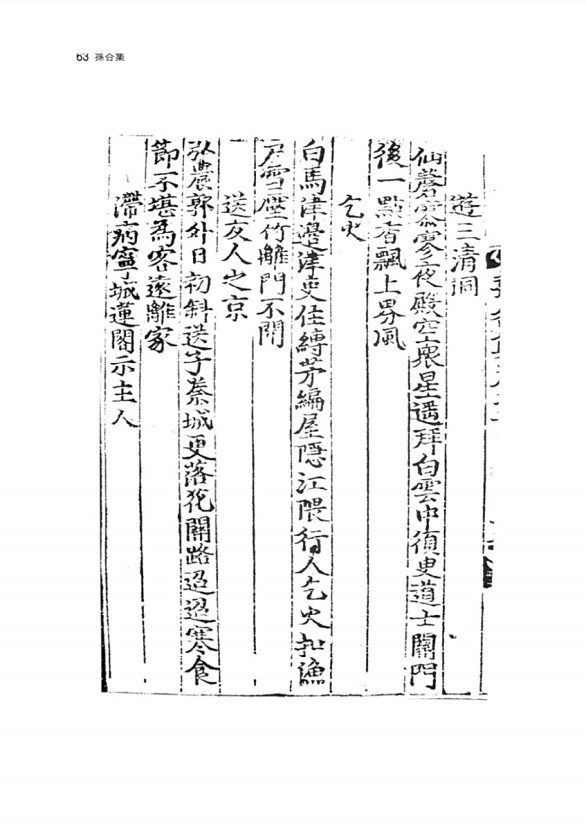 63 孫合集
遊三清洞
仙磬寥寥夜殿空衆星遥拜白雲中須臾道士關門
後一點香飄上界風
乞火
白馬津邊津吏住縛茅編屋隱江隈行人乞火扣漁
户雪壓竹離門不開
送友人之京
弘農郭外日初斜送子秦城更落花關路迢迢寒食
節不堪為客遠離家
滯病寧城蓮閣示主人